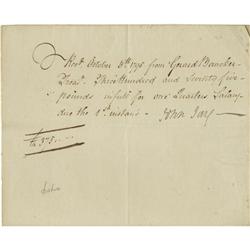 Recd. October 8th 1795 from Gerard Bancker
Treasr. Three Hundred and Seventy five
pounds in full for one Quarters Salary
due the 1st instant - John Jay
£375